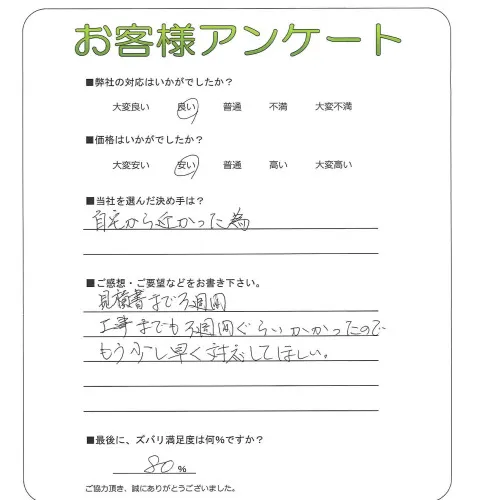 お客様アンケート
■弊社の対応はいかがでしたか？
大変良い 良い 普通 不満 大変不満
■価格はいかがでしたか？
大変安い 安い 普通 高い 大変高い
■当社を選んだ決め手は？
自宅から近かった為
■ご感想・ご要望などをお書き下さい。
見積書まで3週間
工事までも3週間ぐらいかかったので
もう少し早く対応してほしい。
■最後に、ズバリ満足度は何%ですか？
80 %
ご協力頂き、誠にありがとうございました。